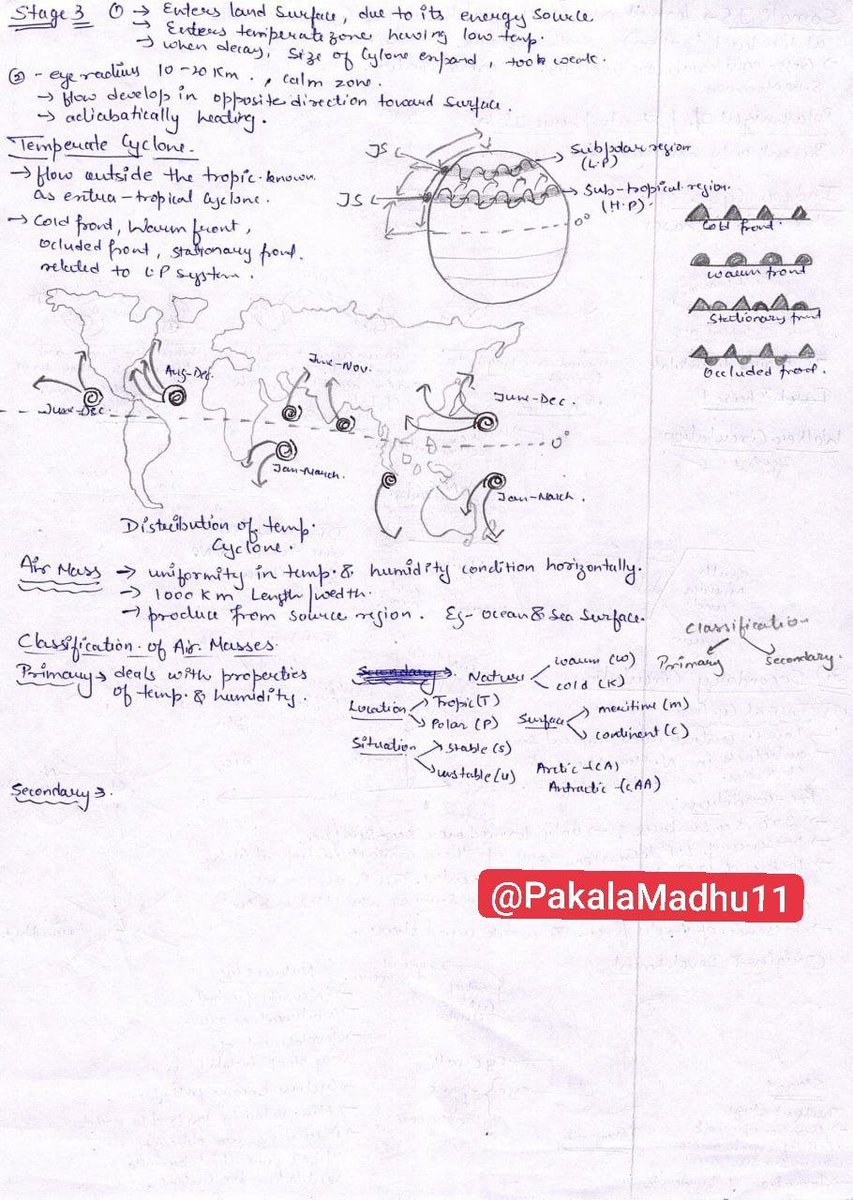 Stage 3 ① → Enters land surface, due to its energy source
→ Enters temperate zone having low temp.
→ when decay, size of cylone expand, took weak.
② - eye radius 10-20 Km., calm zone.
→ flow develop in opposite direction toward surface.
→ adiabatically heating.
Temperate Cyclone.
→ flow outside the tropic known
as extra-tropical cyclone.
→ Cold front, Warm front,
Occluded front, stationary front.
related to L.P System.
JS
JS
Subpolar region
(L.P)
Sub-tropical region.
(H.P).
0°
Cold front.
Warm front
Stationary front
Occluded front.
June-Dec.
Aug-Dec.
June-Nov.
June-Dec.
Jan-March.
0°
Jan-March.
Distribution of temp.
Cyclone.
Air Mass → uniformity in temp. & humidity condition horizontally.
→ 1000 Km Length/width.
→ produce from source region. Eg- ocean & Sea Surface.
Classification of Air Masses.
Classification
Primary
Secondary.
Primary → deals with properties
of temp. & humidity.
Nature
warm (w)
cold (K)
Location
Tropic (T)
Polar (P)
Surface
meritime (m)
continent (c)
Situation
stable (s)
unstable (u)
Arctic - (CA)
Antractic - (CAA)
Secondary →.
@PakalaMadhu11